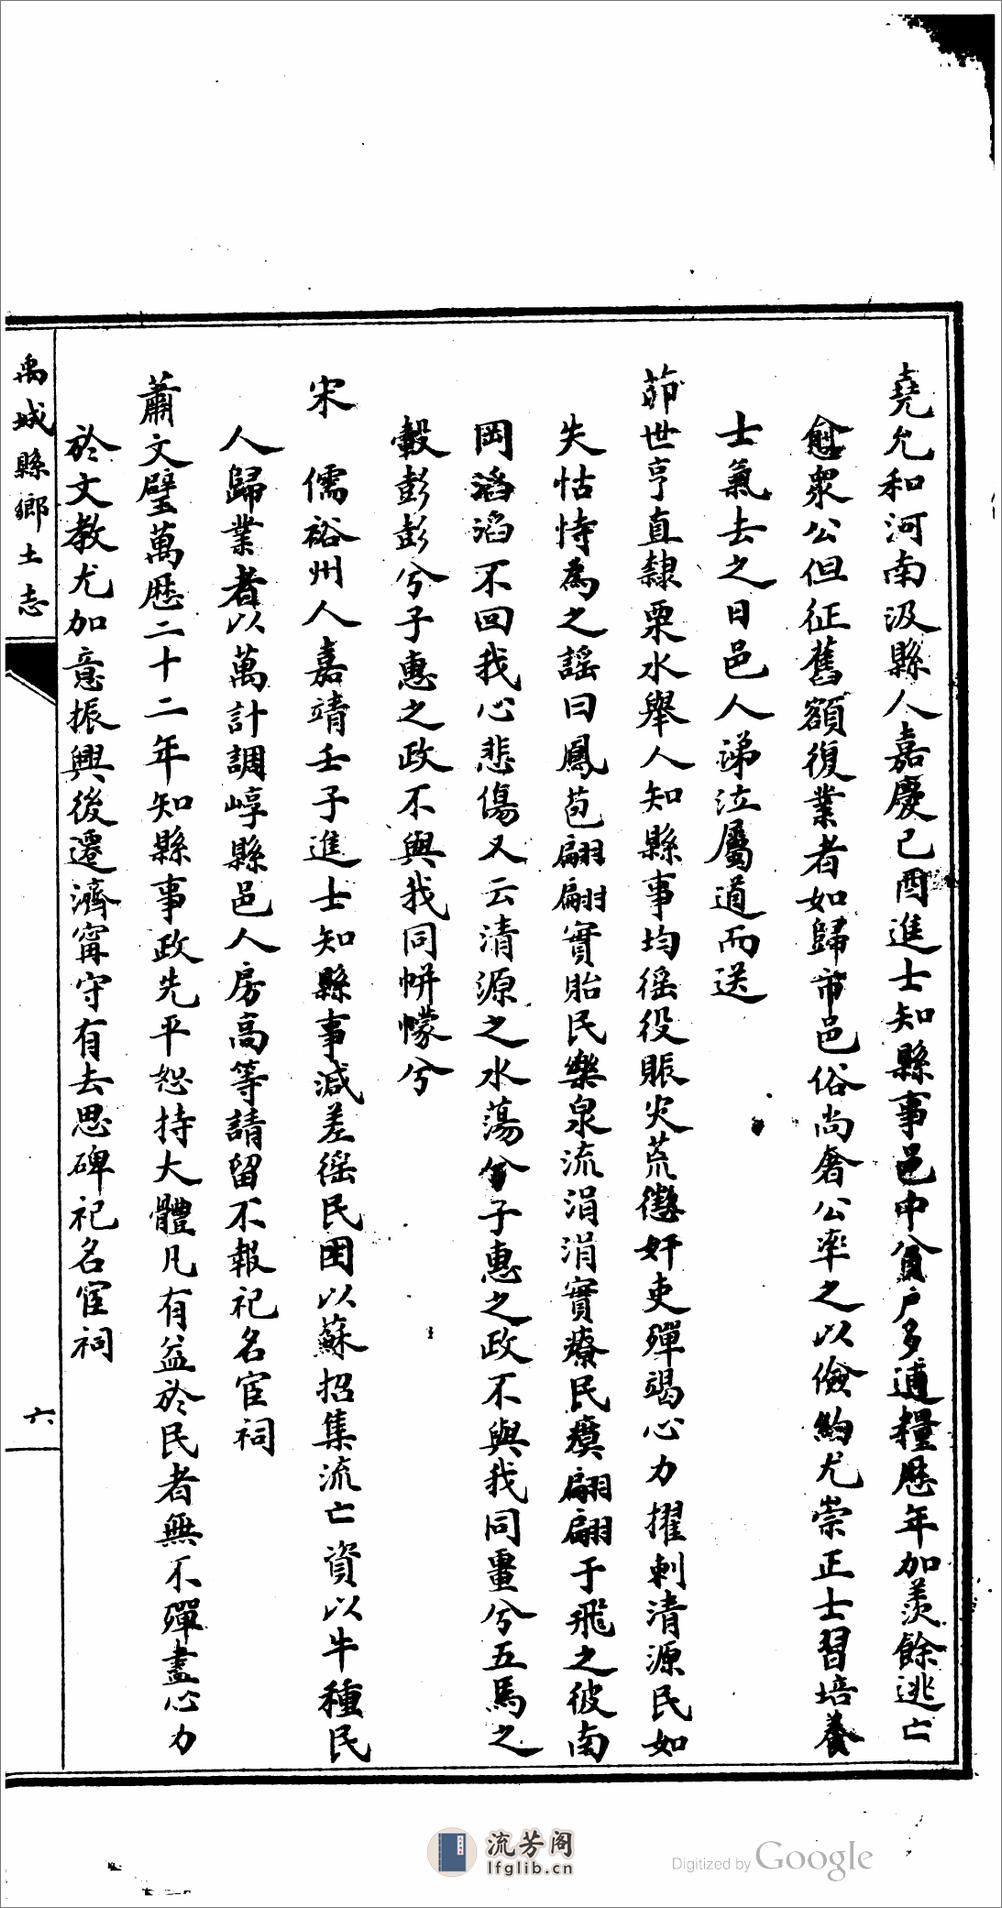 堯允和河南汲縣人嘉慶己酉進士知縣事邑中貧戶多逋糧歷年加羨餘逃亡
愈衆公但征舊額復業者如歸市邑俗尚奢公率之以儉約尤崇正士習培養
士氣去之日邑人涕泣屬道而送
茆世亨直隸栗水舉人知縣事均徭役賑災荒懲奸吏殫竭心力擢刺清源民如
失怙恃為之謠曰鳳苞翩翩實貽民樂泉流涓涓實療民瘼翩翩于飛之彼南
岡滔滔不回我心悲傷又云清源之水蕩兮子惠之政不與我同畺兮五馬之
轂彭彭兮子惠之政不與我同帡幪兮
宋 儒裕州人嘉靖壬子進士知縣事減差徭民困以蘇招集流亡資以牛種民
人歸業者以萬計調崞縣邑人房高等請留不報祀名宦祠
蕭文璧萬歷二十二年知縣事政先平恕持大體凡有益於民者無不殫盡心力
於文教尤加意振興後遷濟甯守有去思碑祀名宦祠
禹城縣鄉土志
六
流芳阁
lfglib.cn
Digitized by Google